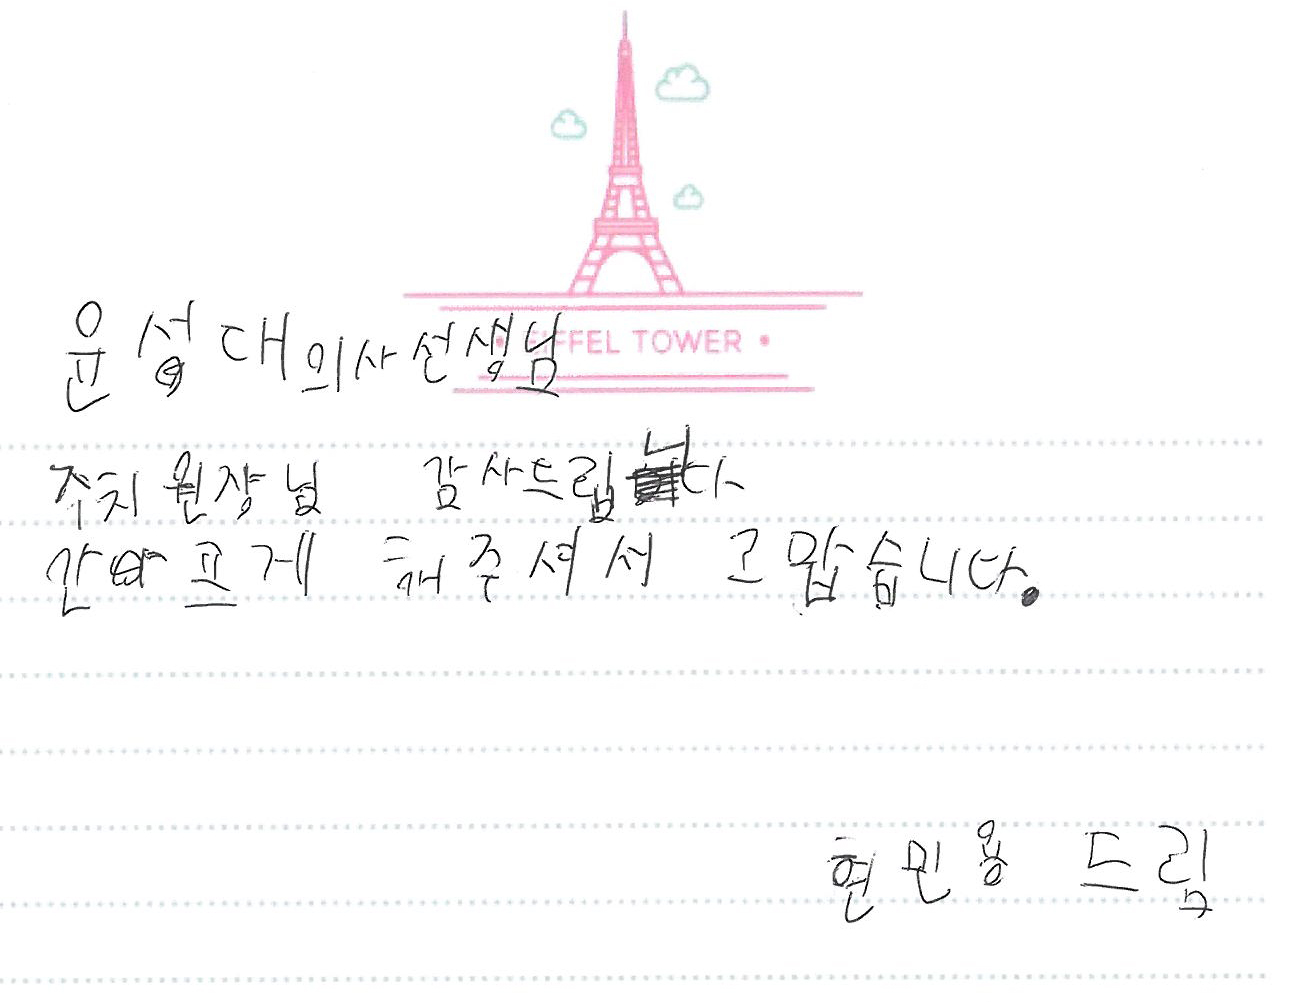 • EIFFEL TOWER •
윤성대의사선생님
주치원장님 감사드립니다
안아프게 해주셔서 고맙습니다.
현민용 드림